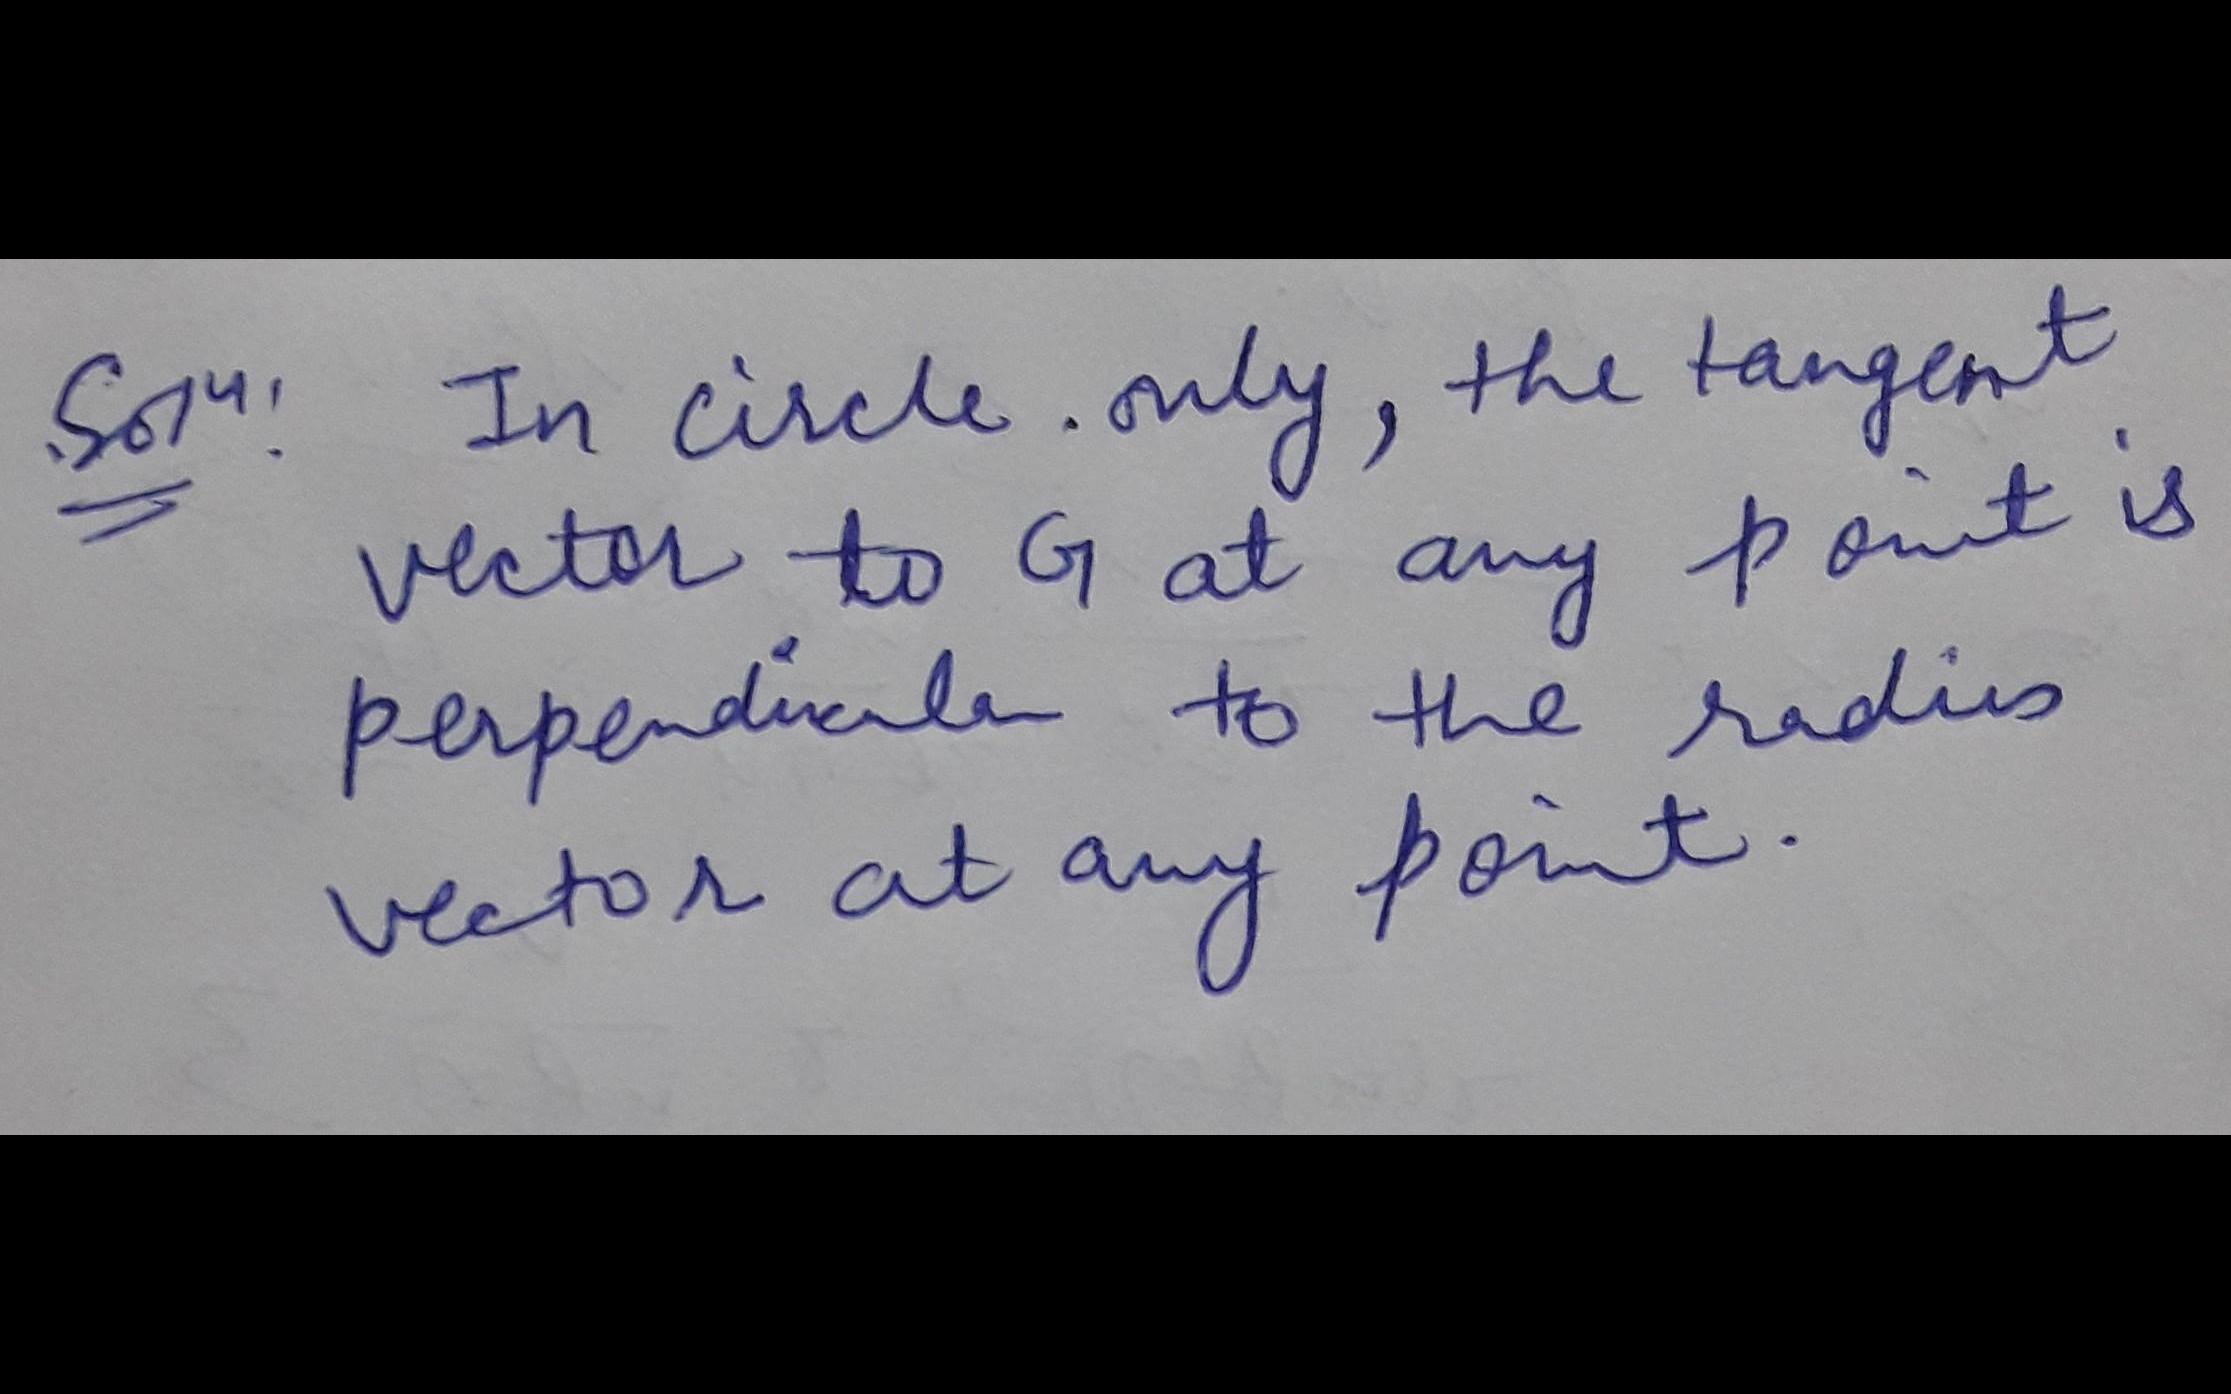 Solⁿ: In circle only, the tangent
vector to G at any point is
perpendicular to the radius
vector at any point.